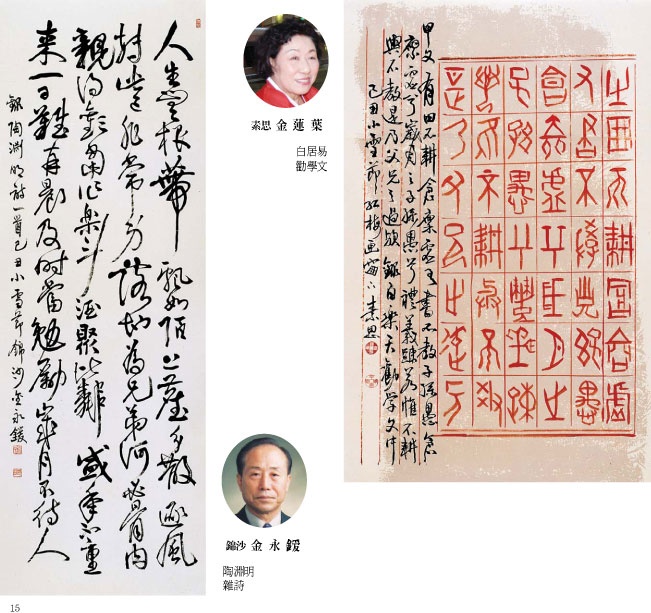 人生無根蔕飄如陌上塵分散逐風
轉此已非常身落地爲兄弟何必骨肉
親得歡當作樂斗酒聚比鄰盛年不重
來一日難再晨及時當勉勵歲月不待人
錄陶淵明詩一首己丑小雪節錦沙金永鍰
素思 金蓮葉
白居易
勸學文
錦沙 金永鍰
陶淵明
雜詩
有田不耕倉廩虛
有書不教子孫愚
倉廩虛兮歲月乏
子孫愚兮禮義疎
若惟不耕與不教
是乃父兄之過歟
甲文 有田不耕倉廩虛有書不教子孫愚倉
廩虛兮歲月乏子孫愚兮禮義疎若惟不耕
與不教是乃父兄之過歟錄白樂天勸學文中
己丑小雪節紅梅画窗下素思
15